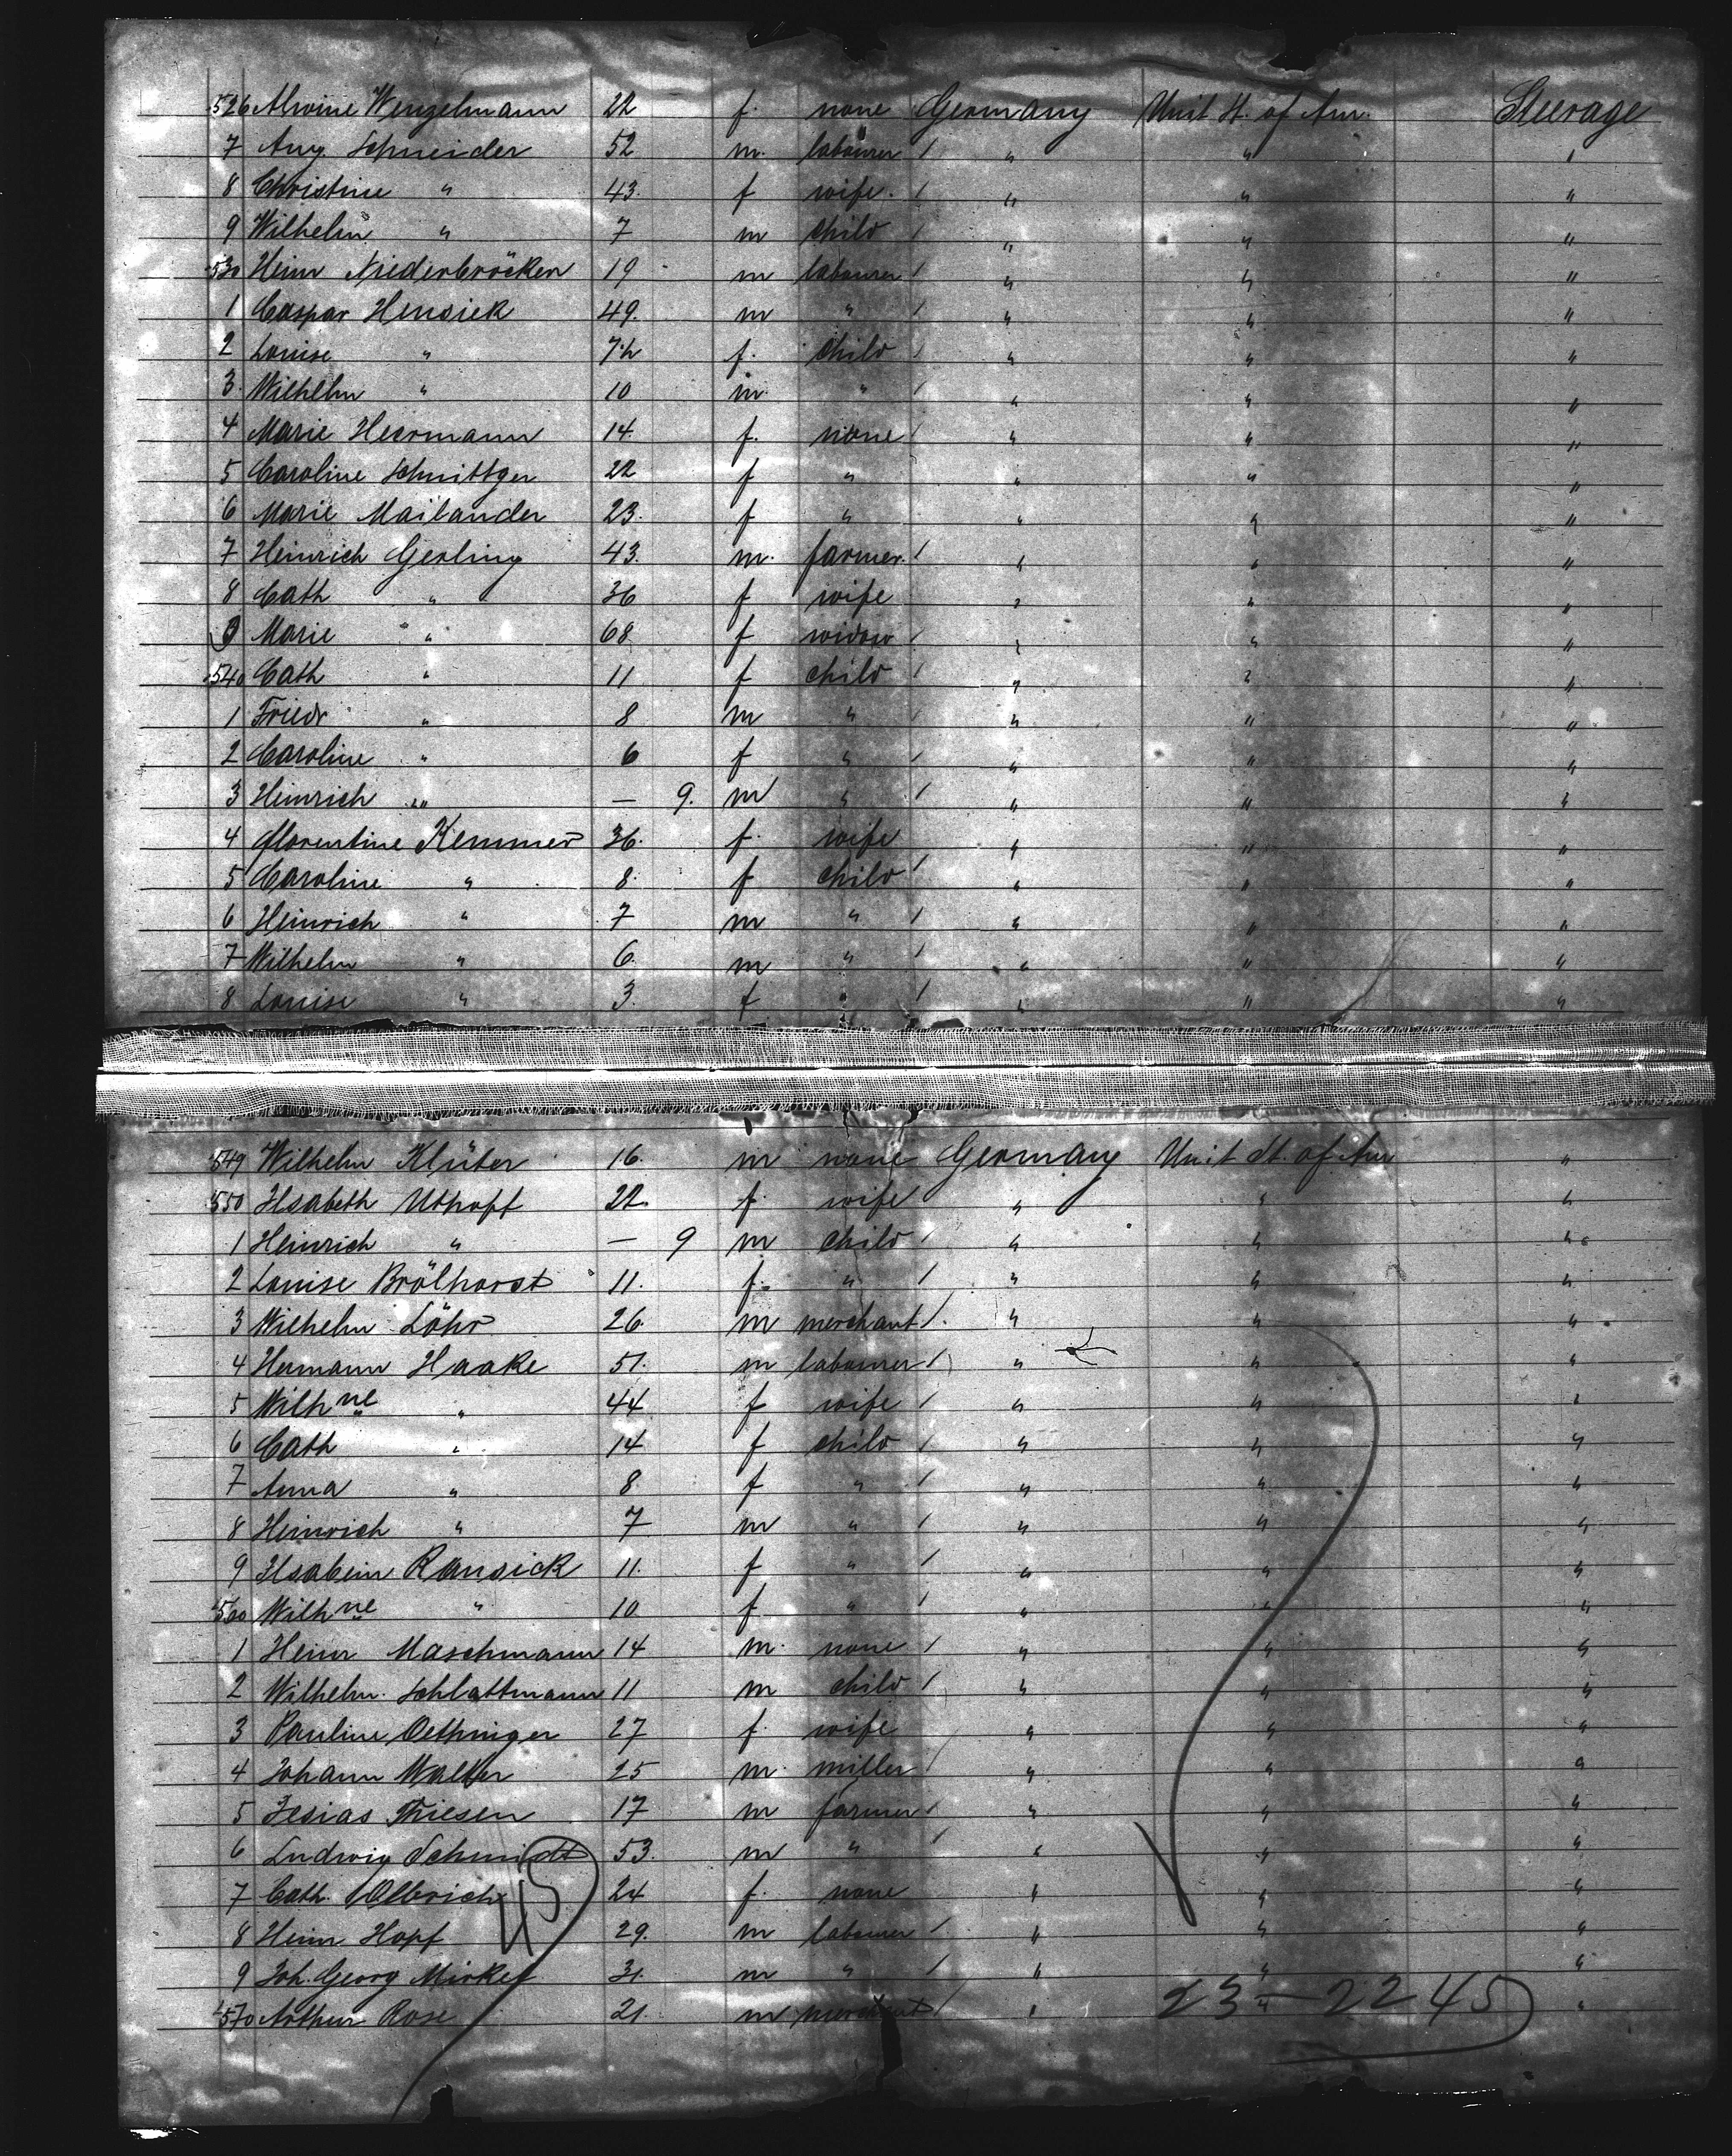 526 Alwine Wengelmann 22 f. none Germany Unit St. of Am. Steerage
7 Aug. Schneider 52 m. labourer / " " "
8 Christine " 43. f wife. / " " "
9 Wilhelm " 7 m child / " " "
530 Heinr Niederbröcker 19 m labourer / " " "
1 Caspar Hensick 49. m " / " " "
2 Louise " 7½ f. child / " " "
3. Wilhelm " 10 m. " / " " "
4 Marie Heermann 14. f. none / " " "
5 Caroline Schnittger 22 f " " " "
6 Marie Mailander 23. f " " " "
7 Heinrich Gerling 43. m. farmer. / " " "
8 Cath " 36 f wife " " "
9 Marie " 68 f widow / " " "
540 Cath " 11 f child / " " "
1 Friedr " 8 m " / " " "
2 Caroline " 6 f " / " " "
3 Heinrich " — 9. m " / " " "
4 Florentine Kemmer 36. f. wife " " "
5 Caroline " 8. f child / " " "
6 Heinrich " 7 m " / " " "
7 Wilhelm " 6. m " / " " "
8 Louise " 3. f " / " " "
549 Wilhelm Klüter 16. m none Germany Unit St. of Am "
550 Ilsabeth Uthoff 22. f. wife " " "
1 Heinrich " — 9 m child / " " "
2 Louise Brölhorst 11. f. " / " " "
3 Wilhelm Löhr 26. m merchant /. " " "
4 Hermann Haake 51. m labourer / " " "
5 Wilhne " 44 f wife / " " "
6 Cath " 14 f child / " " "
7 Anna " 8 f " / " " "
8 Heinrich " 7 m " / " " "
9 Ilsabein Ransick 11. f " / " " "
560 Wilhne " 10 f " / " " "
1 Heinr Maschmann 14 m. none / " " "
2 Wilhelm. Schlattmann 11 m child / " " "
3 Pauline Oethinger 27 f. wife " " "
4 Johann Walter 25 m. miller / " " "
5 Jesias Thiesen 17 m farmer / " " "
6 Ludwig Schmidt 53. m " / " " "
7 Cath. Olbrich 24 f. none " " "
8 Heinr Hopf 29. m labourer / " " "
9 Joh. Georg Mirker 31. m " / " " "
570 Arthur Rose 21. m merchant / " " "
45
23 — 22 45